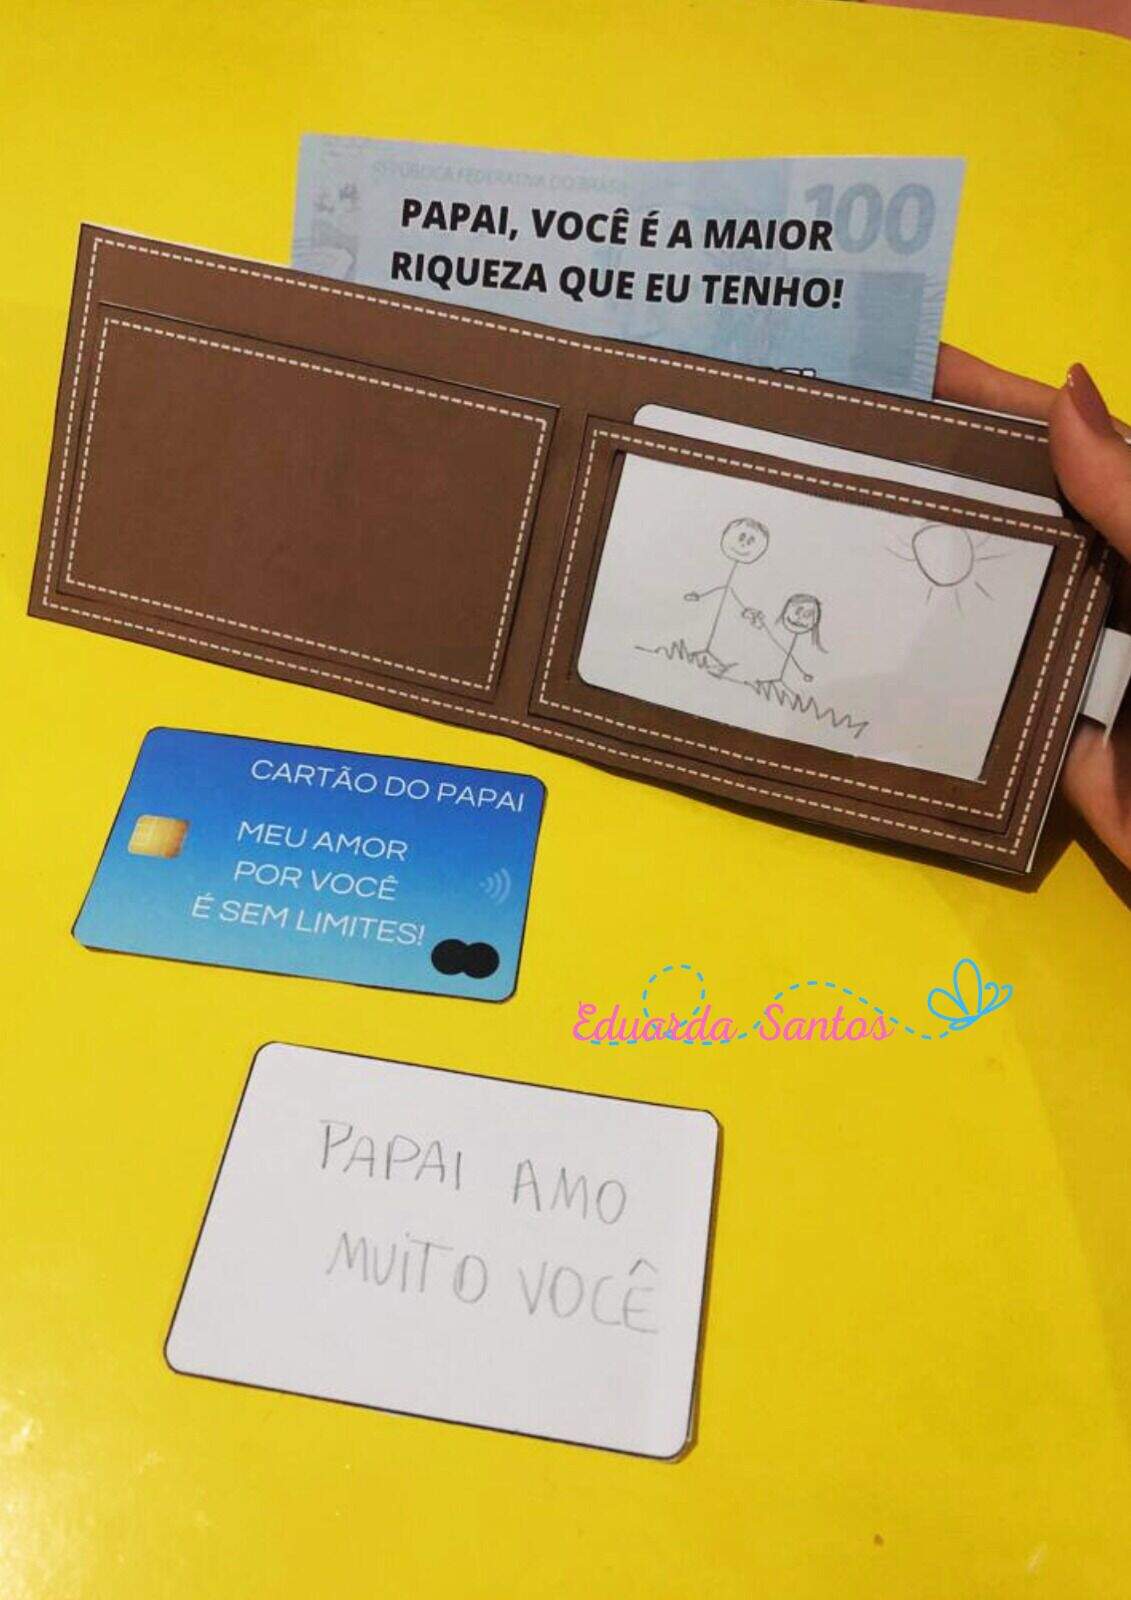 REPÚBLICA FEDERATIVA DO BRASIL
100
PAPAI, VOCÊ É A MAIOR
RIQUEZA QUE EU TENHO!
CARTÃO DO PAPAI
MEU AMOR
POR VOCÊ
É SEM LIMITES!
Eduarda Santos
PAPAI AMO
MUITO VOCÊ